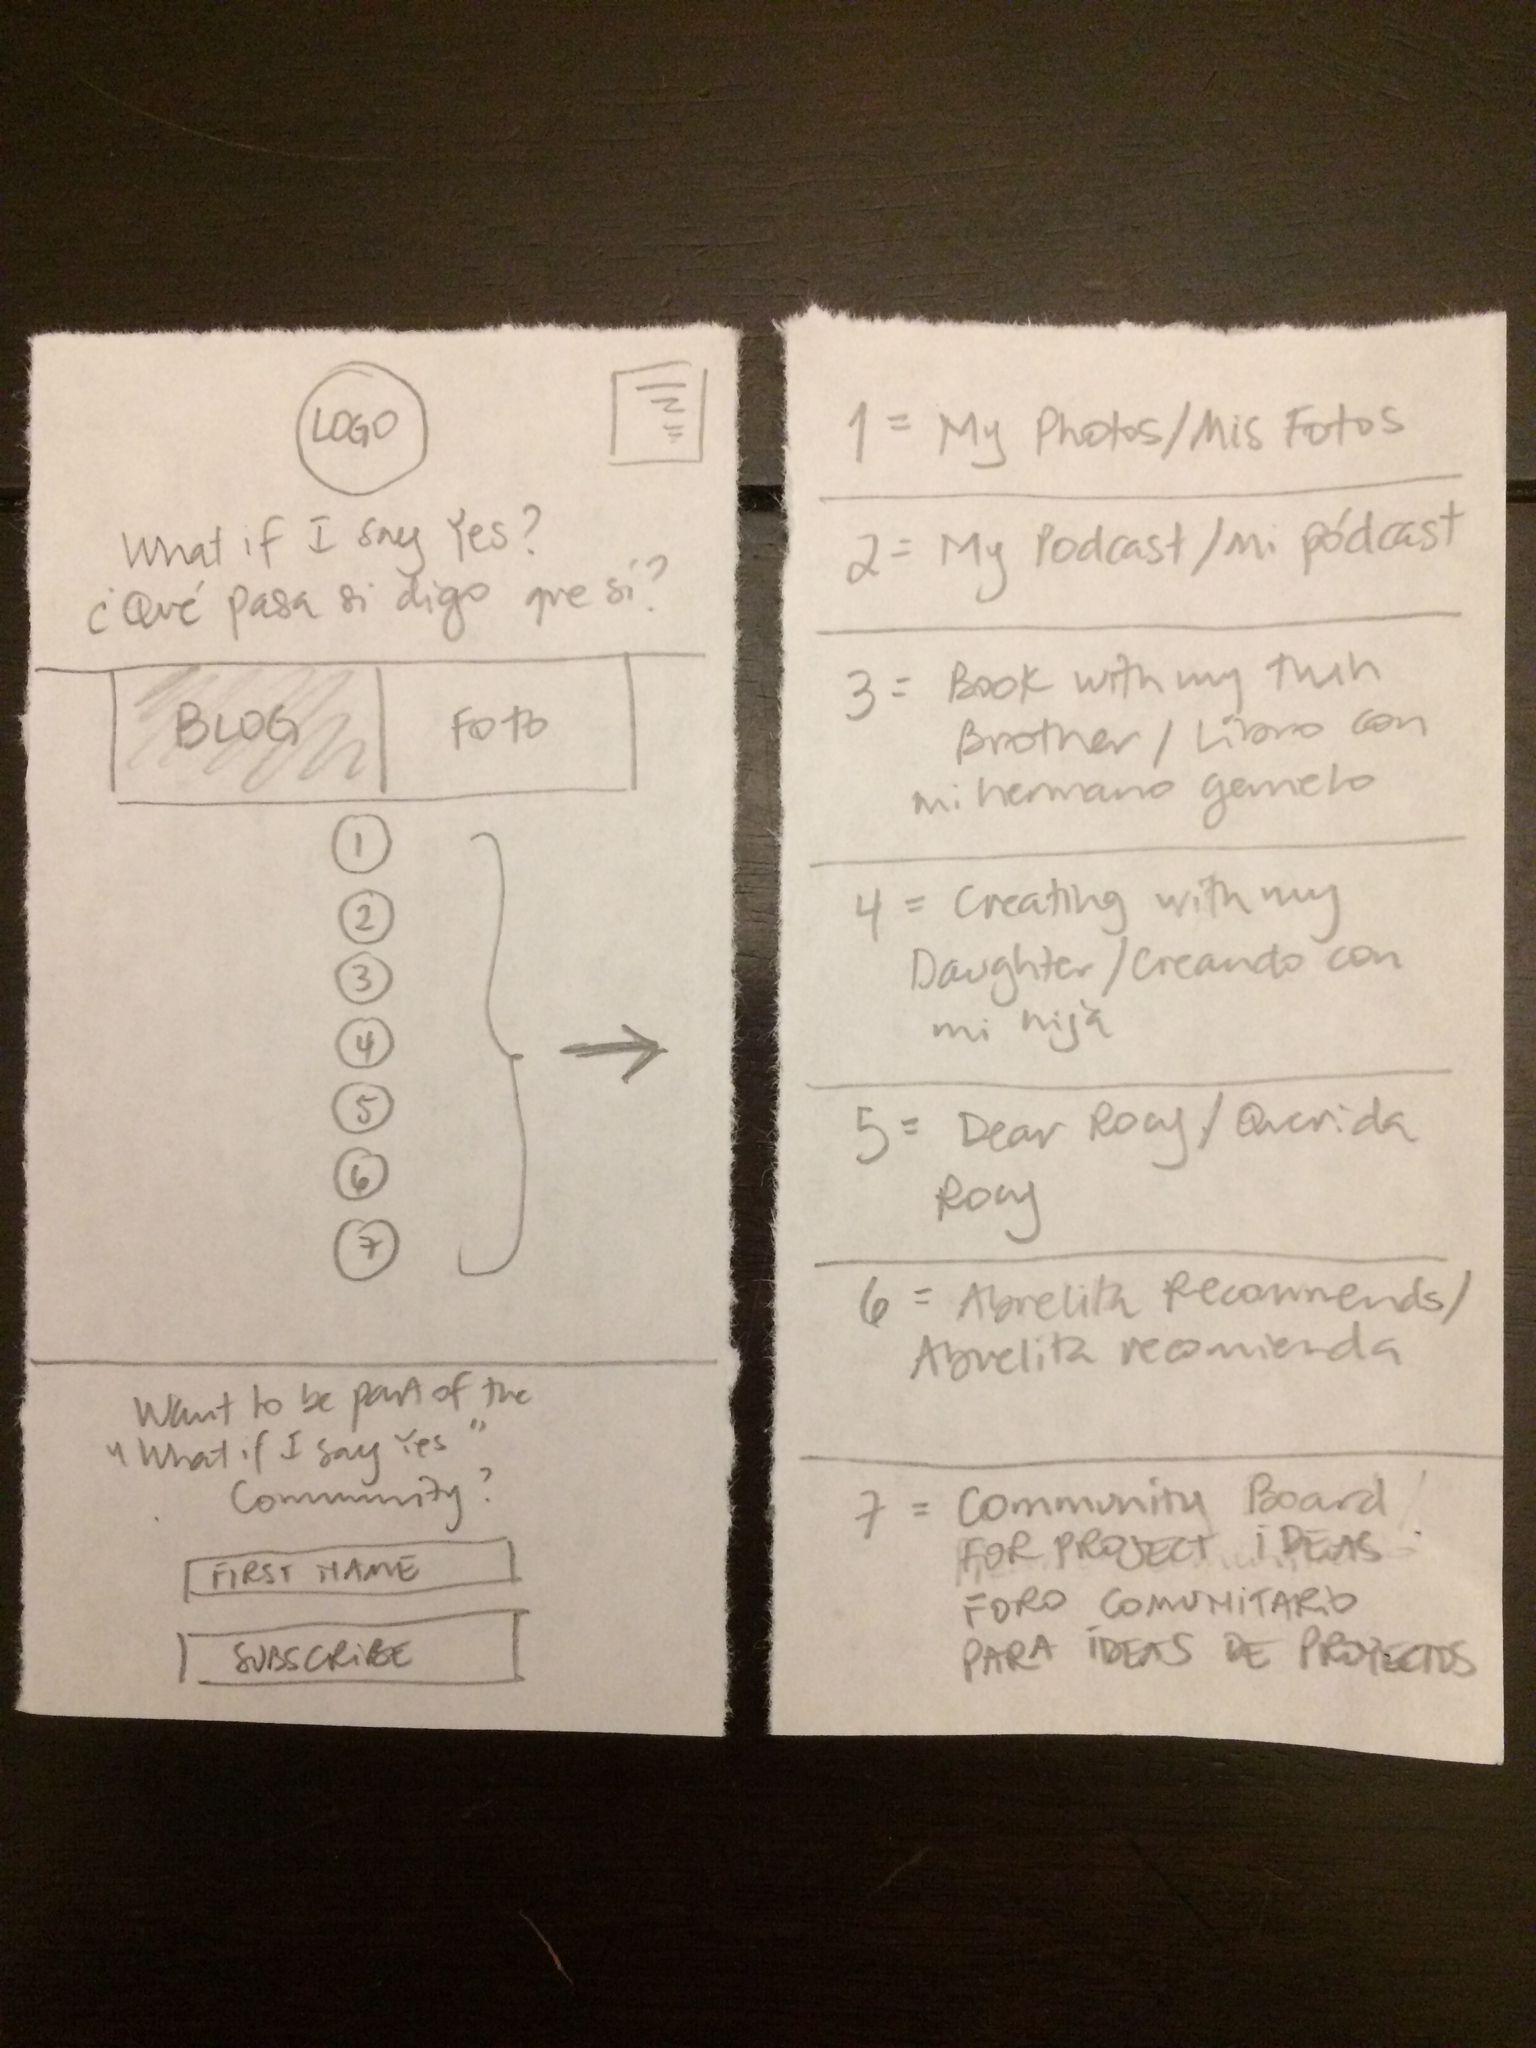 LOGO
What if I say Yes?
¿Qué pasa si digo que sí?
BLOG
FOTO
1
2
3
4
5
6
7
Want to be part of the
"What if I say Yes"
Community?
FIRST NAME
SUBSCRIBE
1 = My Photos/Mis Fotos
2 = My Podcast/Mi pódcast
3 = Book with my twin
Brother/Libro con
mi hermano gemelo
4 = Creating with my
Daughter/Creando con
mi hija
5 = Dear Rocy/Querida
Rocy
6 = Abuelita Recommends/
Abuelita recomienda
7 = Community Board/
FOR PROJECT IDEAS
FORO COMUNITARIO
PARA IDEAS DE PROYECTOS